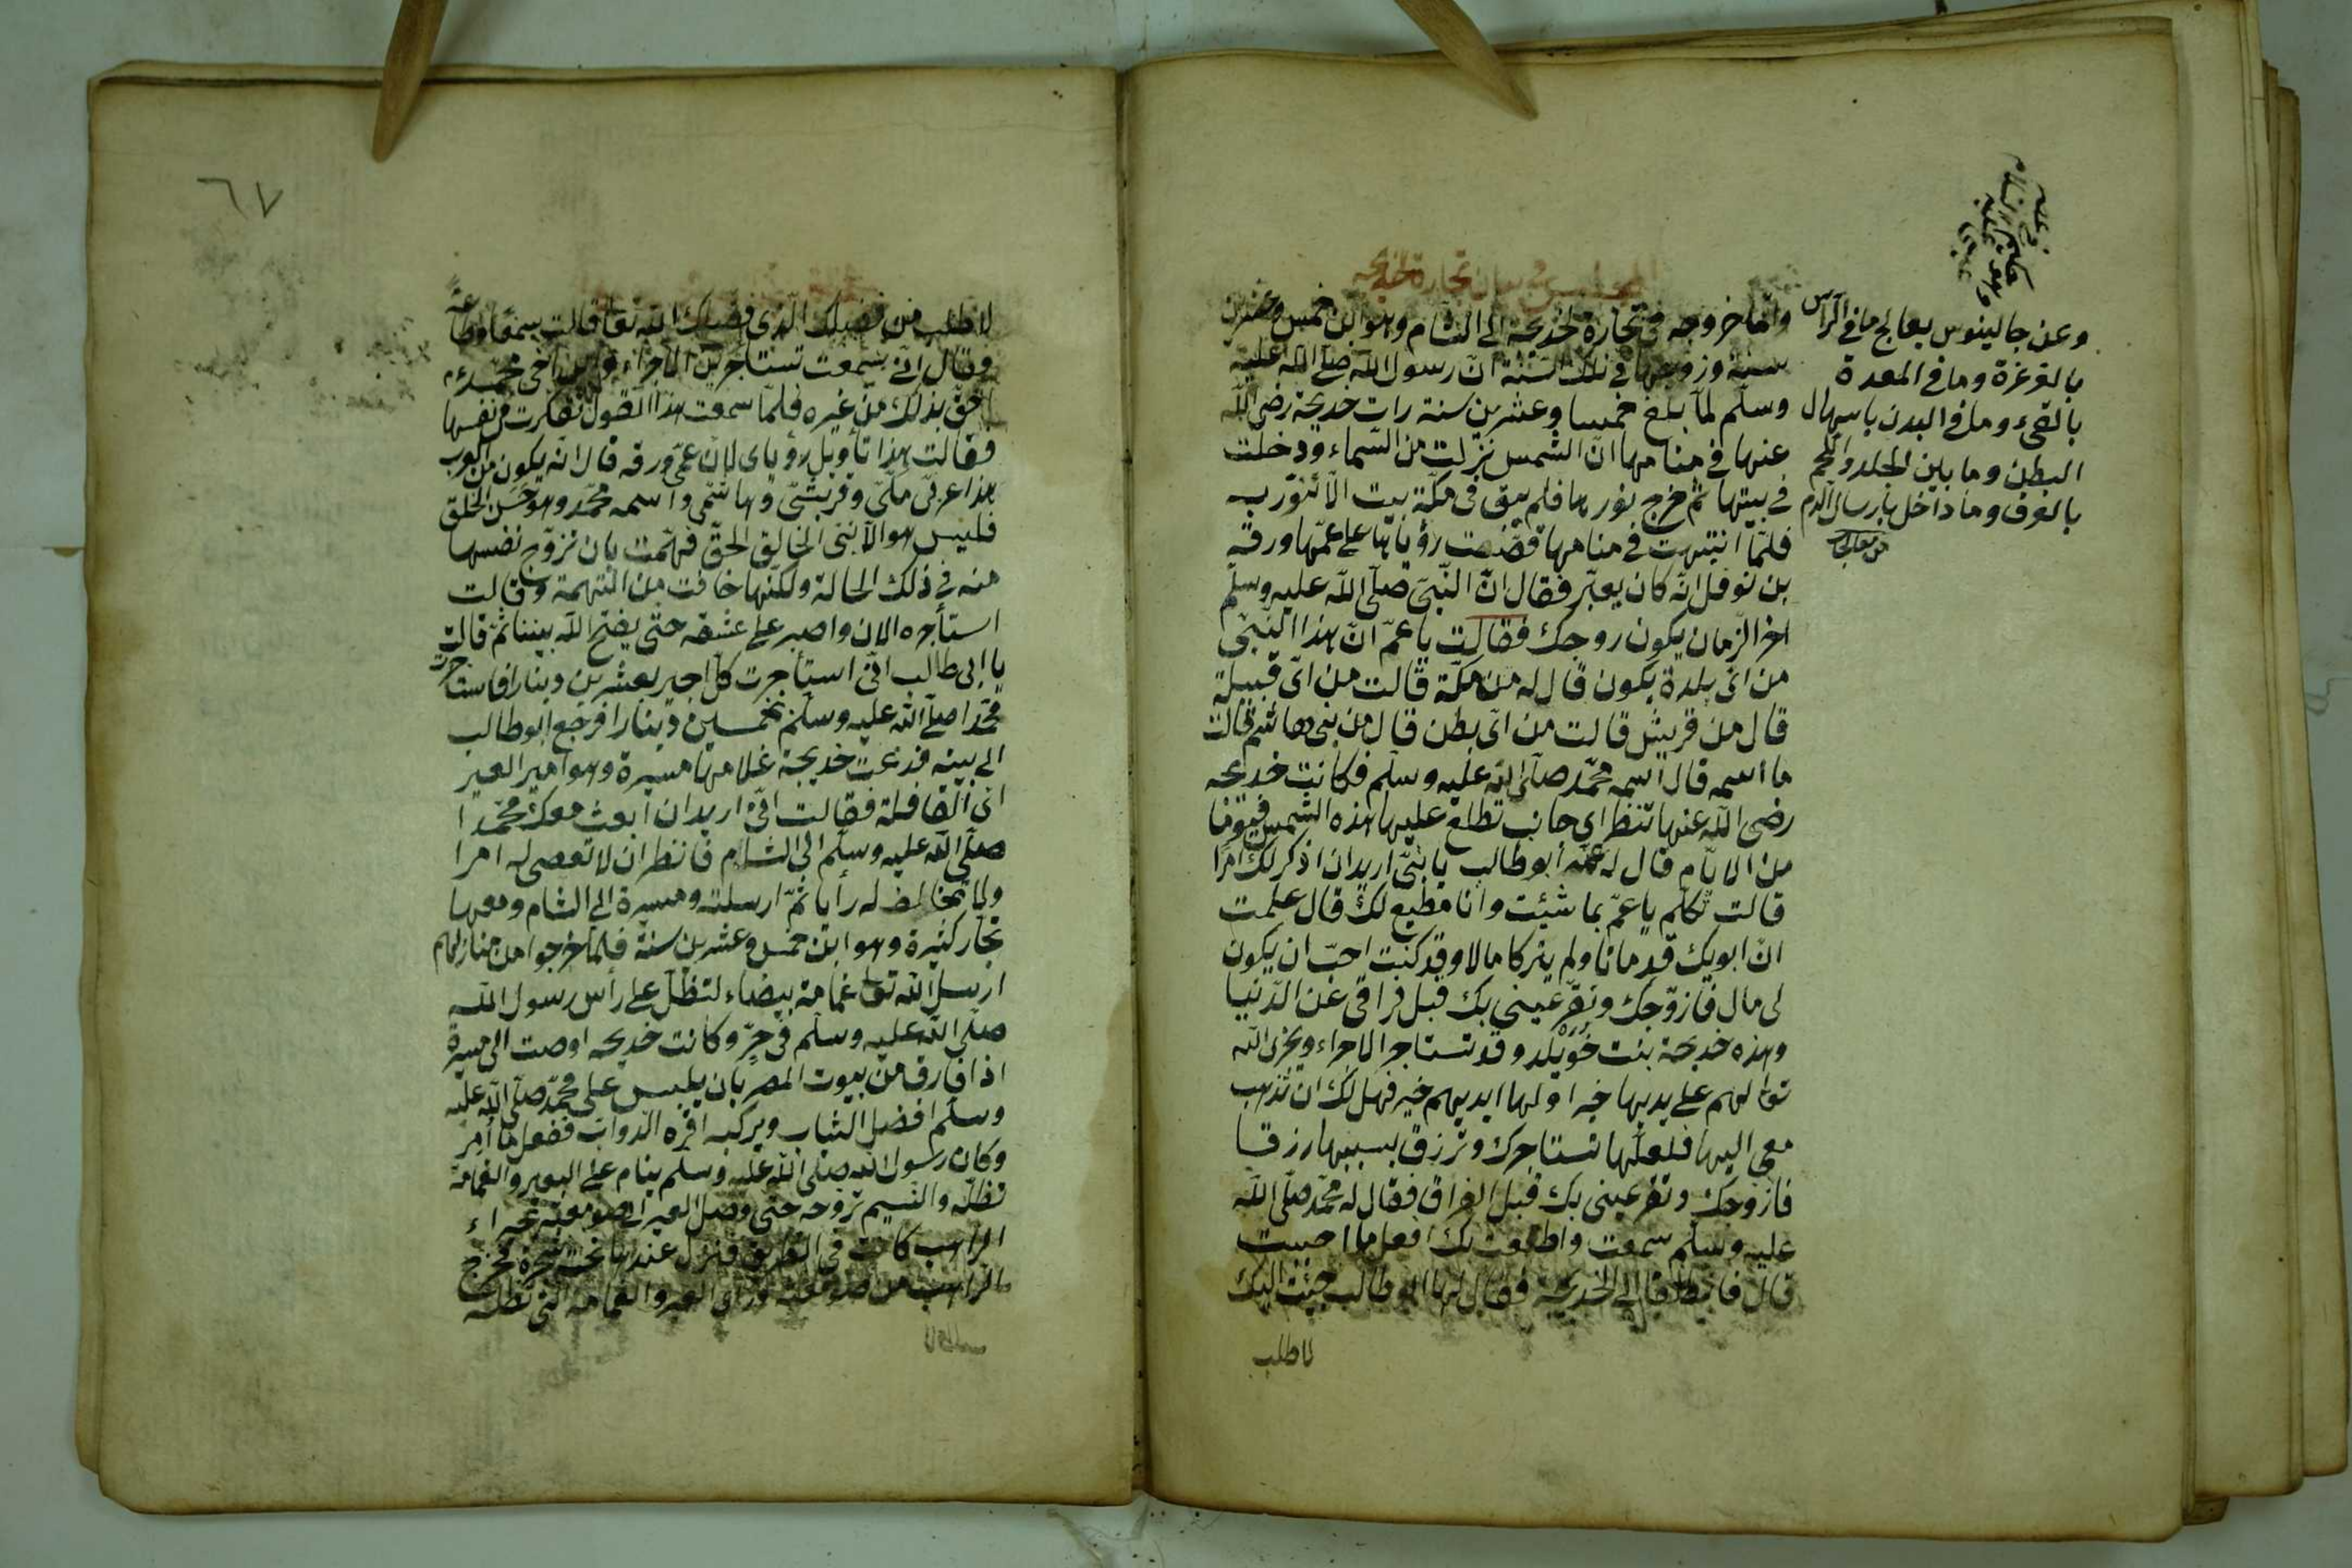 المجلس في بيان تجارة خديجه
واما خروجه في تجارة لخديجة الى الشام وهو ابن خمس وعشرين
سنة وزوجها في تلك السنة ان رسول الله صلى الله عليه
وسلّم لمّا بلغ خمسا وعشرين سنة رات خديجة رضى الله
عنها في منامها انّ الشمس نزلت من السّماء ودخلت
في بيتها ثم خرج نورها فلم يبق في مكّة بيت الّا تنوّر به
فلمّا انتبهت في منامها قصّت رؤياها على عمّها ورقة
بن نوفل انّه كان يعبّر فقال انّ النّبىّ صلّى اللّه عليه وسلّم
اخر الزّمان يكون زوجك فقالت يا عمّ انّ هذا النّبىّ
من اىّ بلدة يكون قال له من مكّة قالت من اىّ قبيلة
قال من قريش قالت من اىّ بطن قال من بنى هاشم قالت
ما اسمه قال اسمه محمّد صلّى الله عليه وسلّم فكانت خديجه
رضى اللّه عنها تنظر اى جانب تطلع عليها هذه الشمس فيوما
من الايّام قال له عمّه أبو طالب يا بنىّ اريد ان اذكر لك امرا
قالت تكلّم يا عمّ بما شيئت وانا مطيع لك قال علمت
انّ ابويك قد ماتا ولم يتركا مالا وقد كنت احبّ ان يكون
لى مال فازوّجك وتقرّ عينى بك قبل فراقى عن الدّنيا
وهذه خديجة بنت خويلد وقد تستاجر الاجراء ويجرى اللّه
تعا لهم على يديها خيرا ولها ايديهم خير فهل لك ان تذهب
معى اليها فلعلّها تستاجرك وترزق بسببها رزقا
فازوجك وتقر عينى بك قبل الفراق فقال له محمّد صلّى اللّه
عليه وسلم سمعت واطعت بك افعل ما احببت
قال فانطلقا الى خديجة فقال لها ابو طالب جيئت اليك
لاطلب
وعن جالينوس يعالج ما في الرأس
بالغرغرة وما في المعدة
بالقىء وما في البدن باسهال
البطن وما بين الجلد واللحم
بالعرق وما داخل بارسال الدم
٦٧
لاطلب من فضلك الّذى فضلك اللّه تعا قالت سمعا وطاعة
وقال انّى سمعت تستاجرين الاجراء وابن اخى محمّد
احقّ بذلك من غيره فلمّا سمعت هذا القول تفكرت في نفسها
فقالت هذا تأويل رؤياى لانّ عمّى ورقه قال انّه يكون من العرب
هذا عربىّ مكّىّ وقريشىّ وهاشمى واسمه محمّد وهو حسن الخلق
فليس هو الّا نبىّ الخالق الحقّ فهمّت بان تزوّج نفسها
منه في ذلك الحالة ولكنّها خافت من التهمة وقالت
استأجره الان واصبر على عشقه حتّى يفتح اللّه بيننا ثمّ قالت
يا ابى طالب انّى استأجرت كلّ اجير بعشرين دينارا فاستاجرت
محمّدا صلّى الله عليه وسلّم بخمسين دينارا فرجع ابو طالب
الى بيته فدعت خديجة غلامها ميسرة وهو امير العير
اى القافلة فقالت انّى اريد ان ابعث معك محمّدا
صلّى اللّه عليه وسلّم الى الشام فانظر ان لا تعصى له امرا
ولا تخالف له رأيا ثمّ ارسلته وميسرة الى الشام ومعها
تجّار كثيرة وهو ابن خمس وعشرين سنة فلمّا خرجوا من منازلهم
ارسل اللّه تعا غمامة بيضاء لتظلّ على رأس رسول اللّه
صلّى اللّه عليه وسلّم في حرّ وكانت خديجه اوصت الى ميسرة
اذا فارق من بيوت المصر بان يلبس على محمّد صلّى اللّه عليه
وسلّم افضل الثياب ويركبه افره الدّوابّ ففعل ما امر
وكان رسول اللّه صلى اللّه عليه وسلم ينام على البعير والغمامة
تظلّه والنسيم تروحه حتى وصل العير الى صومعة بحيراء
الراهب كانت في الطريق فنزل عندها تحت شجرة فخرج
الراهب من صومعته وراى العير والغمامة التى تظله